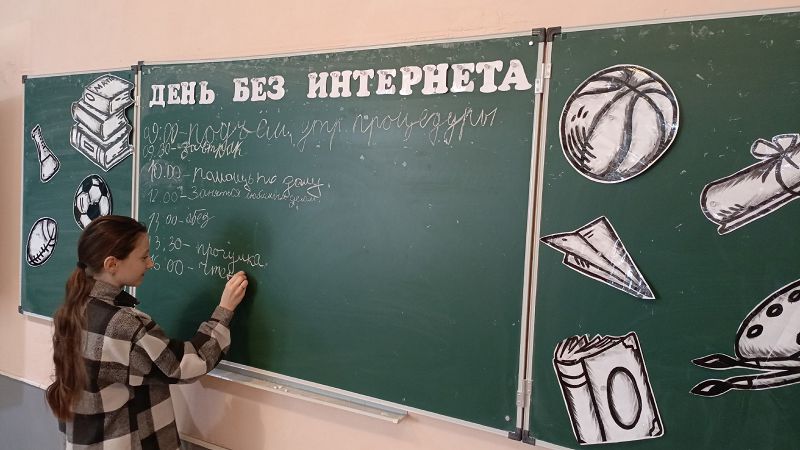 ДЕНЬ БЕЗ ИНТЕРНЕТА
09:00-подъём, утр. процедуры
09:30-завтрак
10.00-помощь по дому.
12 00-Заняться любимым делом.
13 00-обед
3:30-прогулка.
6:00-чте
МАТН